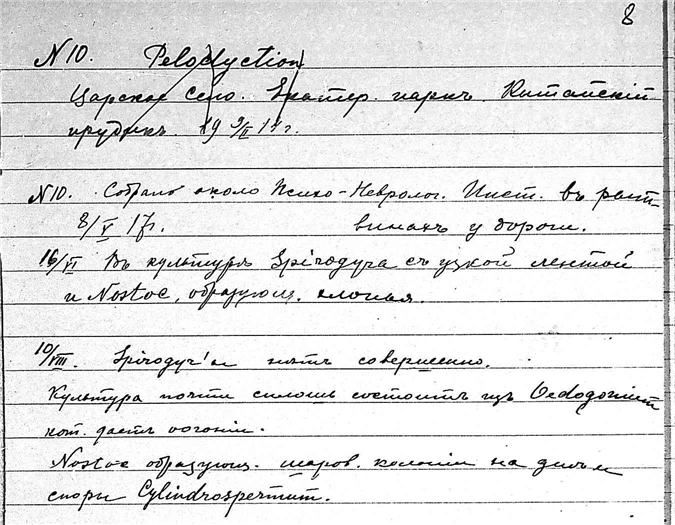 8
N 10. Pelodyction
Царское Село. Екатер. паркъ. Китайскій
прудикъ. 19 9/II 17 г.
N 10. Собрано около Психо-Невролог. Инст. въ рыт-
8/V 17 г. винахъ у дороги.
16/VI Въ культурѣ Spirogyra съ узкой лентой
и Nostoc, образующ. клочья.
10/VIII. Spirogyr'ы нѣтъ совершенно.
Культура почти сплошь состоитъ изъ Oedogonium
кот. даетъ оогоніи.
Nostoc образующ. шаров. колоніи на днѣ и
споры Cylindrospermum.